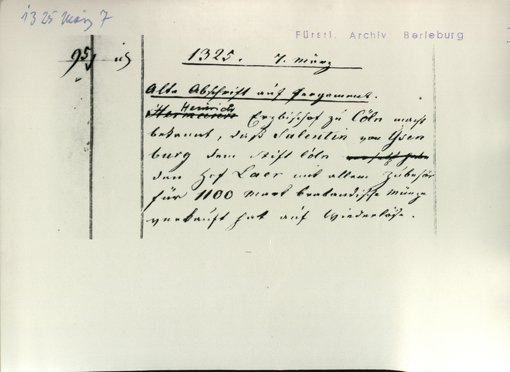 1325 März 7
Fürstl. Archiv Berleburg
95
1325. 7. März
Alte Abschrift auf Pergament.
Hermann Heinrich Erzbischof zu Cöln macht
bekannt, daß Salentin von Ysen
burg dem Stift Cöln versetzt habe
den Hof Laer mit allem Zubehör
für 1100 Mark brabandische Münze
verkauft hat auf Wiederlöse.